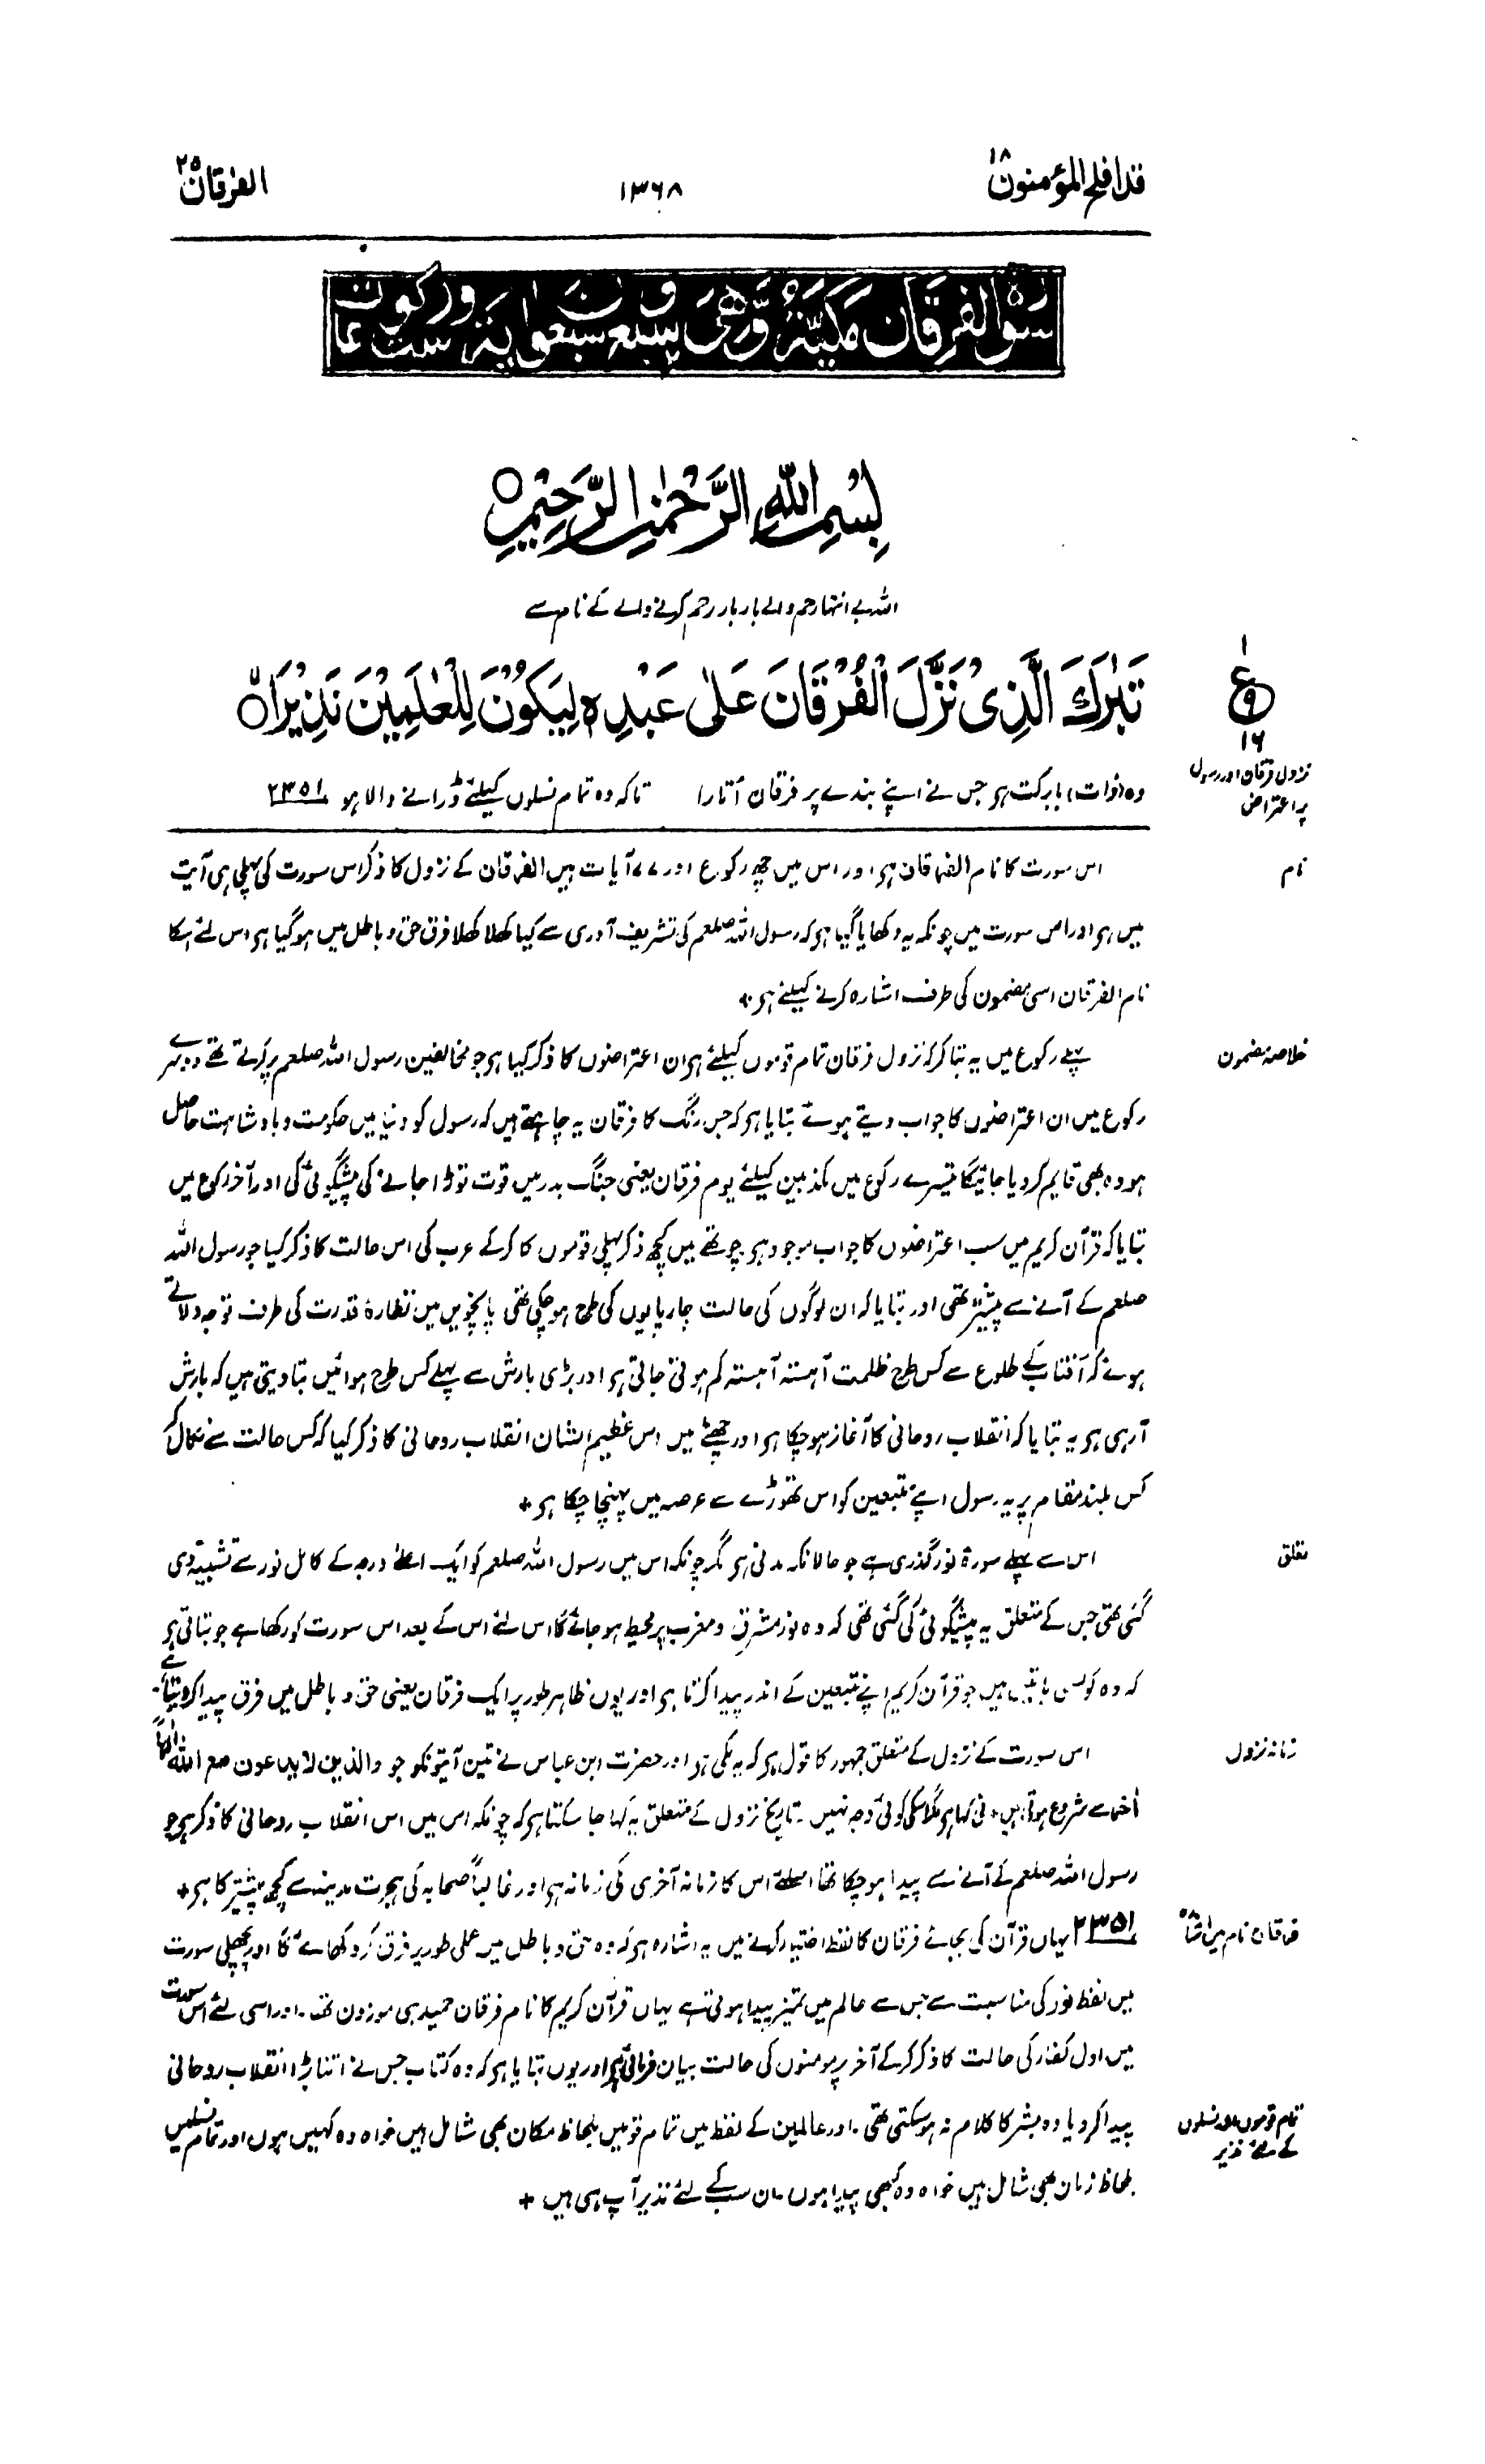 قد افلح المؤمنون ۱۸
۱۳۶۸
الفرقان ۲۵
سورۃ الفرقان مکیۃ وھی سبع وسبعون اٰیۃ وست رکوعات
بِسْمِ اللّٰهِ الرَّحْمٰنِ الرَّحِیْمِ○
اللہ بے انتہا رحم والے بار بار رحم کرنے والے کے نام سے
تَبٰرَكَ الَّذِیْ نَزَّلَ الْفُرْقَانَ عَلٰی عَبْدِهٖ لِیَكُوْنَ لِلْعٰلَمِیْنَ نَذِیْرَا○ۙ
۱
ع
۹
۱۶
نزول فرقان اور رسول
پر اعتراض
وہ (ذات) بابرکت ہو جس نے اپنے بندے پر فرقان اُتارا تاکہ وہ تمام نسلوں کیلئے ڈرانے والا ہو ۲۳۵۱
نام
اس سورت کا نام الفرقان ہو اور اس میں چھ رکوع اور ۷۷ آیات ہیں الفرقان کے نزول کا ذکر اس سورت کی پہلی ہی آیت
میں ہو اور اس سورت میں چونکہ یہ دکھایا گیا ہو کہ رسول اللہ صلعم کی تشریف آوری سے کیا کھلا کھلا فرق حق و باطل میں ہوگیا ہو اس لئے اسکا
نام الفرقان اسی مضمون کی طرف اشارہ کرنے کیلئے ہو +
خلاصۂ مضمون
پہلے رکوع میں یہ بتا کر کہ نزول فرقان تمام قوموں کیلئے ہو ان اعتراضوں کا ذکر کیا ہو جو مخالفین رسول اللہ صلعم پر کرتے تھے دوسرے
رکوع میں ان اعتراضوں کا جواب دیتے ہوئے بتایا ہو کہ جس رنگ کا فرقان یہ چاہتے ہیں کہ رسول کو دنیا میں حکومت و بادشاہت حاصل
ہو وہ بھی قایم کردیا جائیگا تیسرے رکوع میں مکذبین کیلئے یوم فرقان یعنی جنگ بدر میں قوت توڑا جانے کی پیشگوئی کی اور آخر رکوع میں
بتایا کہ قرآن کریم میں سب اعتراضوں کا جواب موجود ہو چوتھے میں کچھ ذکر پہلی قوموں کا کرکے عرب کی اس حالت کا ذکر کیا جو رسول اللہ
صلعم کے آنے سے پیشتر تھی اور بتایا کہ ان لوگوں کی حالت چارپایوں کی طرح ہوچکی تھی پانچویں میں نظارۂ قدرت کی طرف توجہ دلاتے
ہوئے کہ آفتاب کے طلوع سے کس طرح ظلمت آہستہ آہستہ کم ہوتی جاتی ہو اور بڑی بارش سے پہلے کس طرح ہوائیں بتا دیتی ہیں کہ بارش
آرہی ہو یہ بتایا کہ انقلاب روحانی کا آغاز ہوچکا ہو اور چھٹے میں اس عظیم الشان انقلاب روحانی کا ذکر کیا کہ کس حالت سے نکال کر
کس بلند مقام پر یہ رسول اپنے متبعین کو اس تھوڑے سے عرصہ میں پہنچا چکا ہو +
تعلق
اس سے پہلے سورۃ نور گذری ہے جو حالانکہ مدنی ہو مگر چونکہ اس میں رسول اللہ صلعم کو ایک اعلےٰ درجہ کے کامل نور سے تشبیہ دی
گئی تھی جس کے متعلق یہ پیشگوئی کی گئی تھی کہ وہ نور مشرق و مغرب پر محیط ہو جائے گا اس لئے اس کے بعد اس سورت کو رکھا ہے جو بتاتی ہو
کہ وہ کونسی باتیں ہیں جو قرآن کریم اپنے متبعین کے اندر پیدا کرتا ہو اور یوں ظاہر طور پر ایک فرقان یعنی حق و باطل میں فرق پیدا کردیتا ہے۔
زمانہ نزول
اس سورت کے نزول کے متعلق جمہور کا قول ہو کہ یہ مکی ہو اور حضرت ابن عباس نے تین آیتونکو جو والذین لا یدعون مع اللہ الٰہاً
اٰخر سے شروع ہوتی ہیں مدنی کہا ہو مگر اسکی کوئی وجہ نہیں۔ تاریخ نزول کے متعلق یہ کہا جا سکتا ہو کہ چونکہ اس میں اس انقلاب روحانی کا ذکر ہو جو
رسول اللہ صلعم کے آنے سے پیدا ہوچکا تھا اسلئے اس کا زمانہ آخری مکی زمانہ ہو اور غالباً صحابہ کی ہجرت مدینہ سے کچھ پیشتر کا ہو +
فرقان نام میں اشارہ
۲۳۵۱ یہاں قرآن کی بجائے فرقان کا لفظ اختیار کرنے میں یہ اشارہ ہو کہ وہ حق و باطل میں عملی طور پر فرق کر دکھائے گا اور پچھلی سورت
میں لفظ نور کی مناسبت سے جس سے عالم میں تمیز پیدا ہوتی ہے یہاں قرآن کریم کا نام فرقان حمید ہی موزون تھا۔ اور اسی لئے اس سورت
میں اول کفار کی حالت کا ذکر کرکے آخر پر مومنوں کی حالت بیان فرمائی ہو اور یوں بتایا ہو کہ وہ کتاب جس نے اتنا بڑا انقلاب روحانی
تمام قوموں اور نسلوں
کے لئے نذیر
پیدا کردیا وہ بشر کا کلام نہ ہوسکتی تھی۔ اور عالمین کے لفظ میں تمام قومیں بلحاظ مکان بھی شامل ہیں خواہ وہ کہیں ہوں اور تمام نسلیں
بلحاظ زمان بھی شامل ہیں خواہ وہ کبھی پیدا ہوں۔ ان سب کے لئے نذیر آپ ہی ہیں +